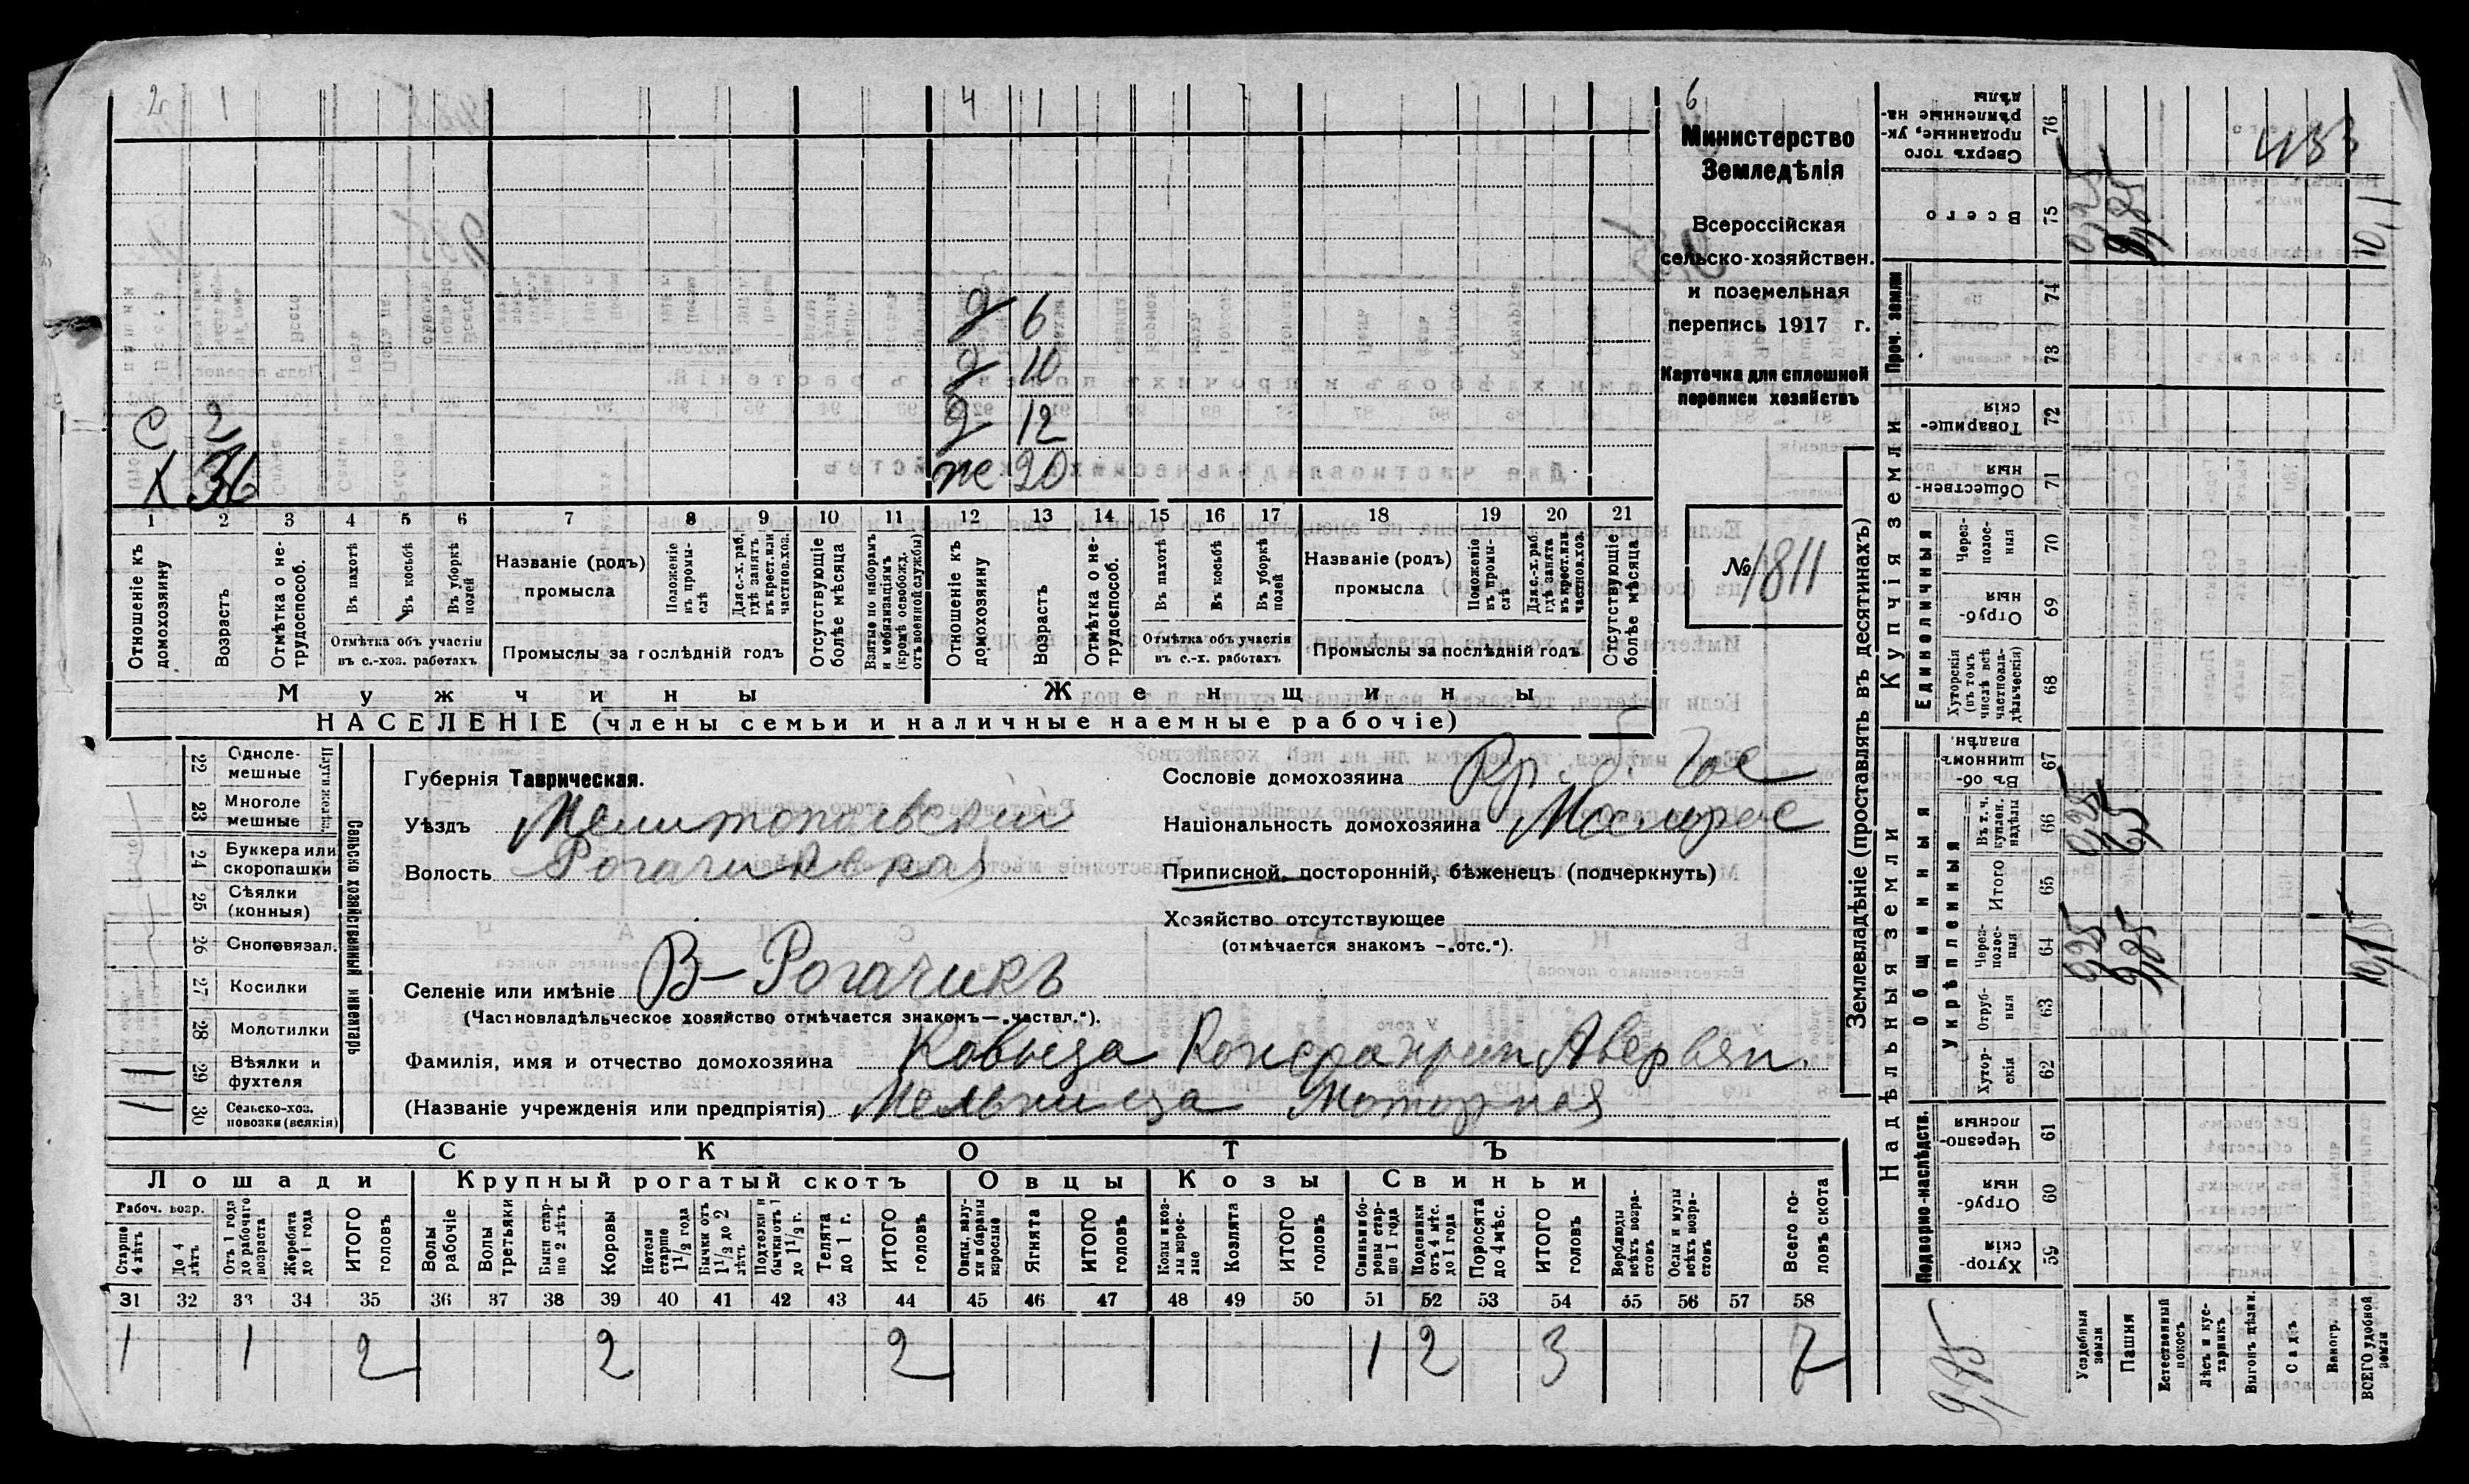 2 1 4 1
С 2
Х 36
д 6
д 10
д 12
же 20
1 2 3 4 5 6 7 8 9 10 11 12 13 14 15 16 17 18 19 20 21
Отношеніе къ домохозяину
Возрастъ
Отмѣтка о не-трудоспособ.
Въ пахотѣ
Въ косьбѣ
Въ уборкѣ полей
Отмѣтка объ участіи въ с.-хоз. работахъ
Названіе (родъ) промысла
Положеніе въ промы-слѣ
Для с.-х. раб. гдѣ занятъ въ крест. или частнов. хоз.
Промыслы за послѣдній годъ
Отсутствующіе болѣе мѣсяца
Взятые по наборамъ и мобилизаціямъ (кромѣ освобожд. отъ военной службы)
Отношеніе къ домохозяину
Возрастъ
Отмѣтка о не-трудоспособ.
Въ пахотѣ
Въ косьбѣ
Въ уборкѣ полей
Отмѣтка объ участіи въ с.-х. работахъ
Названіе (родъ) промысла
Положеніе въ промы-слѣ
Для с.-х. раб. гдѣ занята въ крест. или частнов. хоз.
Промыслы за послѣдній годъ
Отсутствующіе болѣе мѣсяца
Мужчины
Женщины
НАСЕЛЕНІЕ (члены семьи и наличные наемные рабочіе)
6
Министерство
Земледѣлія
Всероссійская
сельско-хозяйствен.
и поземельная
перепись 1917 г.
Карточка для сплошной
переписи хозяйствъ
№ 1811
22 Одноле-мешные
23 Многоле мешные
Плуги желѣзн.
24 Буккера или скоропашки
25 Сѣялки (конныя)
26 Сноповязал.
27 Косилки
28 Молотилки
29 Вѣялки и фухтеля 1
30 Сельско-хоз. повозки (всякія) 1
Сельско хозяйственный инвентарь
Губернія Таврическая.
Уѣздъ Мелитопольскій
Волость Рогачикская
Селеніе или имѣніе В-Рогачикъ
(Частновладѣльческое хозяйство отмѣчается знакомъ—„частвл.“).
Фамилія, имя и отчество домохозяина Ковыза Кондратій Аверьян.
(Названіе учрежденія или предпріятія) Мельница Моторная
Сословіе домохозяина Кр.
Національность домохозяина Малорос
Приписной, посторонній, бѣженецъ (подчеркнуть)
Хозяйство отсутствующее
(отмѣчается знакомъ —„отс.“).
СКОТЪ
Лошади
Крупный рогатый скотъ
Овцы
Козы
Свиньи
Рабоч. возр.
Старше 4 лѣтъ
До 4 лѣтъ
Отъ 1 года до рабочаго возраста
Жеребята до 1 года
ИТОГО головъ
Волы рабочіе
Волы третьяки
Быки стар-ше 2 лѣтъ
Коровы
Нетели старше 1 1/2 года
Бычки отъ 1 1/2 до 2 лѣтъ
Подтелки и бычки отъ 1 до 1 1/2 г.
Телята до 1 г.
ИТОГО головъ
Овцы, валу-хи и бараны взрослые
Ягнята
ИТОГО головъ
Козы и коз-лы взрос-лые
Козлята
ИТОГО головъ
Свиньи и бо-ровы стар-ше 1 года
Подсвинки отъ 4 мѣс. до 1 года
Поросята до 4 мѣс.
ИТОГО головъ
Верблюды всѣхъ возра-стовъ
Ослы и мулы всѣхъ возра-стовъ
Всего го-ловъ скота
31 32 33 34 35 36 37 38 39 40 41 42 43 44 45 46 47 48 49 50 51 52 53 54 55 56 57 58
1 1 2 2 2 1 2 3 7
Землевладѣніе (проставлять въ десятинахъ)
Купчія земли
Надѣльныя земли
Сверхъ того проданные, ук-рѣпленные на-дѣлы 76
Всего 75
Проч. земли
74
73
Товарище-скія 72
Обществен-ныя 71
Единоличныя
Через-полос-ныя 70
Отруб-ныя 69
Хуторскія (въ томъ числѣ всѣ частновла-дѣльческія) 68
Общинныя
Въ об-щинномъ владѣн. 67
Укрѣпленныя
Въ т. ч. куплен. надѣлы 66
Итого 65
Через-полос-ныя 64
Отруб-ныя 63
Хутор-скія 62
Подворно-наслѣдств.
Черезпо-лосныя 61
Отруб-ныя 60
Хутор-скія 59
Усадебныя земли
Пашня
Естественный покосъ
Лѣсъ и кус-тарникъ
Выгонъ цѣлин.
Садъ
Виногр.
ВСЕГО удобной земли
0,25
9,85
10,1
0,25
9,85
10,1